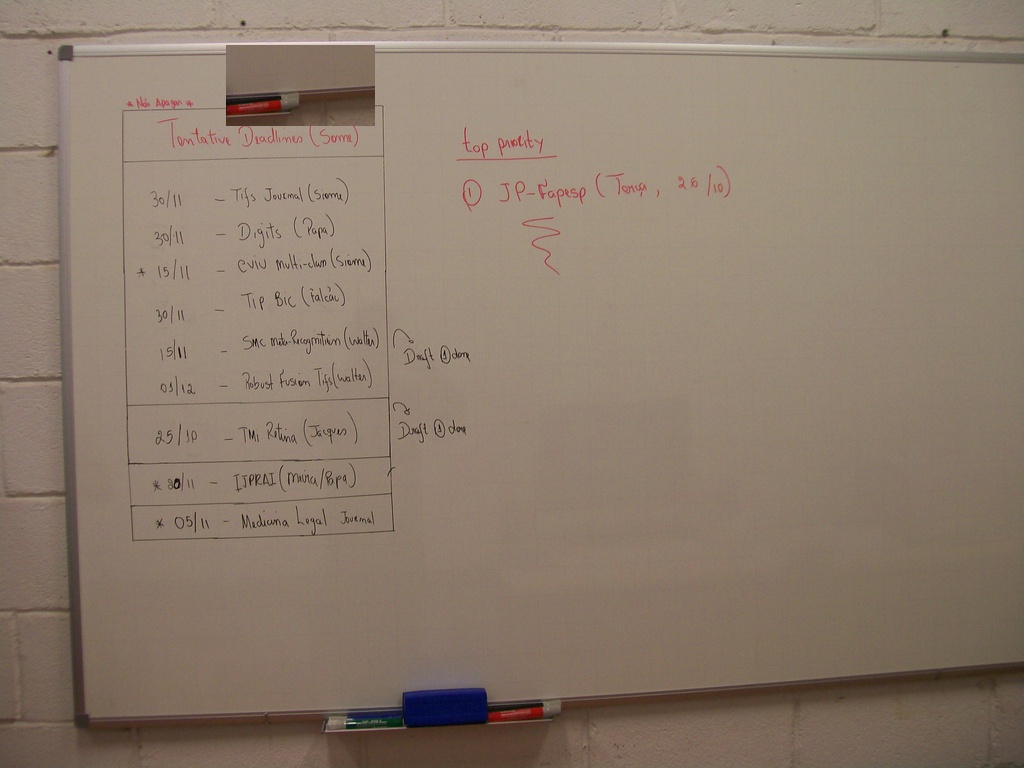 * Não Apagar *
Tentative Deadlines (Some)
30/11 - Tifs Journal (Siome)
30/11 - Digits (Papa)
* 15/11 - CVIU multi-class (Siome)
30/11 - TIP BIC (Falcão)
15/11 - SMC meta-Recognition (Walter)
Draft 1 done
01/12 - Robust Fusion Tifs (Walter)
25/10 - TMI Retina (Jacques)
Draft 1 done
* 30/11 - IJPRAI (Papa)
* 05/11 - Medicina Legal Journal
top priority
1 JP-Fapesp (Terça, 26/10)